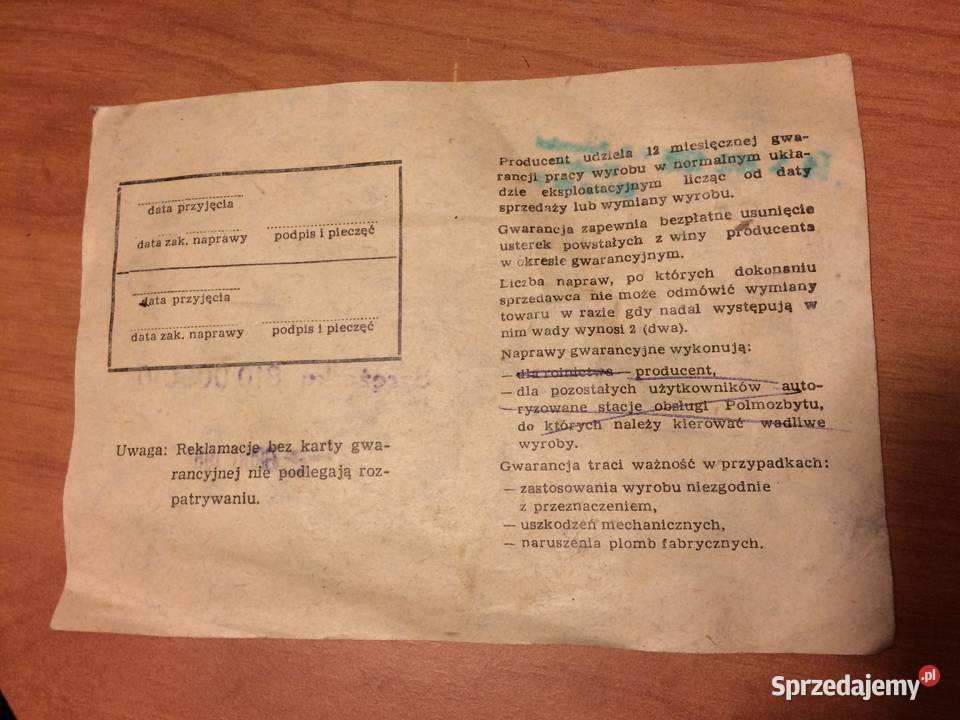 data przyjęcia
data zak. naprawy podpis i pieczęć
data przyjęcia
data zak. naprawy podpis i pieczęć
Uwaga: Reklamacje bez karty gwa-
rancyjnej nie podlegają roz-
patrywaniu.
Producent udziela 12 miesięcznej gwa-
rancji pracy wyrobu w normalnym ukła-
dzie eksploatacyjnym licząc od daty
sprzedaży lub wymiany wyrobu.
Gwarancja zapewnia bezpłatne usunięcie
usterek powstałych z winy producenta
w okresie gwarancyjnym.
Liczba napraw, po których dokonaniu
sprzedawca nie może odmówić wymiany
towaru w razie gdy nadal występują w
nim wady wynosi 2 (dwa).
Naprawy gwarancyjne wykonują:
— dla rolnictwa — producent,
— dla pozostałych użytkowników auto-
ryzowane stacje obsługi Polmozbytu,
do których należy kierować wadliwe
wyroby.
Gwarancja traci ważność w przypadkach:
— zastosowania wyrobu niezgodnie
z przeznaczeniem,
— uszkodzeń mechanicznych,
— naruszenia plomb fabrycznych.
Sprzedajemy.pl